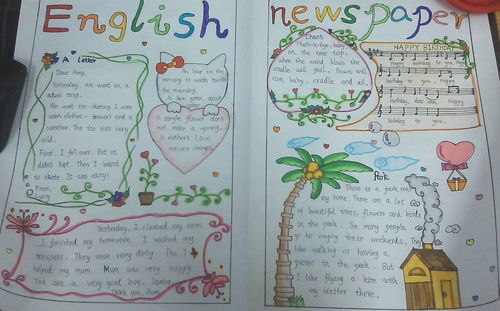 English newspaper
A Letter
Dear Amy,
Yesterday, We went on a
trip.
We went ice-skating. I wore
warm clothes — trousers and a
sweater. The ice was very
cold.
First, I fell over. But it
didn't hurt. Then I learnt
to skate. It was easy!
From,
Lucy
An hour in the
morning is worth two in
the evening.
A single flower does
not make a spring.
A mother's love
never changes.
Yesterday, I cleaned my room.
I finished my homework. I washed my
trousers. They were very dirty. The I
helped my mum. Mum was very happy.
You are a very good boy, Daming.
Thank you, Mum.
Chant
baby,
on the tree top,
when the wind blows the
cradle will fall. Down will
com baby, cradle and all.
HAPPY BIRTHDAY
Happy birthday to you, Happy
birthday to you, Happy
birthday, dear Sam, Happy
birthday to you.
Park
There is a park near
my home. There are a lot
of beautiful trees, flowers and birds
in the park. So many people
go to enjoy their weekends. They
like walking or having a
picnic in the park. But
I like flying a kite with
my sister there.